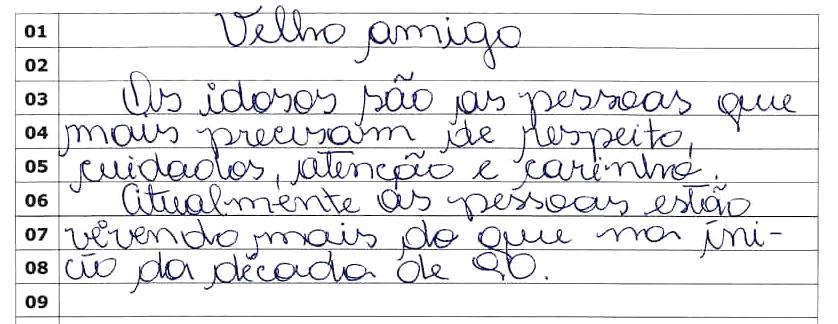 01 Velho amigo
02
03 Os idosos são as pessoas que
04 mais precisam de respeito,
05 cuidados, atenção e carinho.
06 Atualmente as pessoas estão
07 vivendo mais do que no íni-
08 cio da década de 90.
09